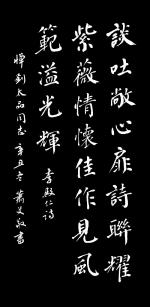 談吐敞心扉詩聯耀
紫薇情懷佳作見風
範溢光輝 李殿仁詩
劍太品同志 辛丑冬 蕭文敬書